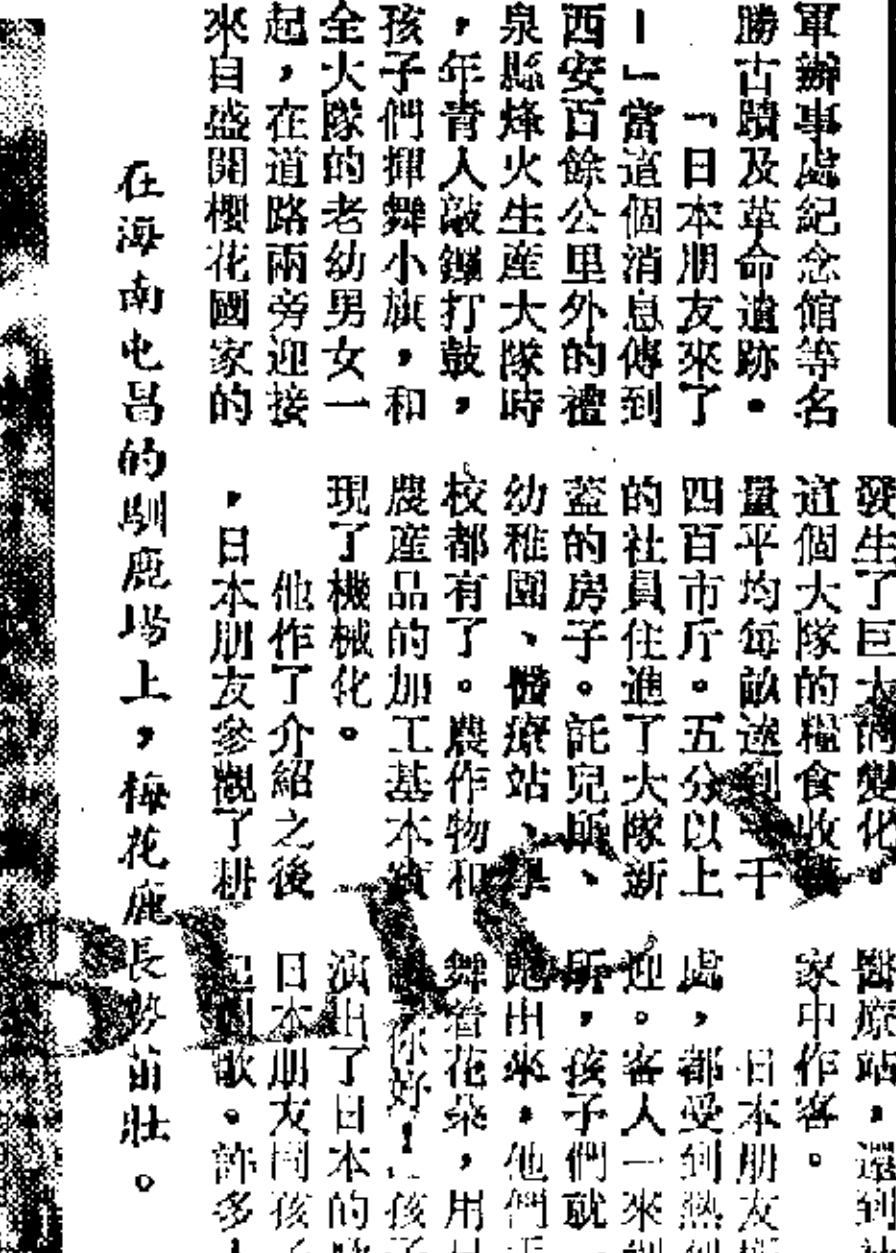 軍辦事處紀念館等名
勝古蹟及革命遺跡。
「日本朋友來了
！」當這個消息傳到
西安百餘公里外的禮
泉縣烽火生產大隊時
，年青人敲鑼打鼓，
孩子們揮舞小旗，和
全大隊的老幼男女一
起，在道路兩旁迎接
來自盛開櫻花國家的
發生了巨大的變化。
這個大隊的糧食收
量平均每畝達到一千
四百市斤。五分以上
的社員住進了大隊新
蓋的房子。託兒所、
幼稚園、醫療站、學
校都有了。農作物和
農產品的加工基本實
現了機械化。
他作了介紹之後
，日本朋友參觀了耕
醫療站，還到社
家中作客。
日本朋友
處，都受到熱烈
迎。客人一來到
所，孩子們就
跑出來，他們手
舞着花朵，用日
你好！」孩子
演出了日本的歌
日本朋友同孩子
起唱歌。許多
在海南屯昌的馴鹿場上，梅花鹿長勢茁壯。
BLIC